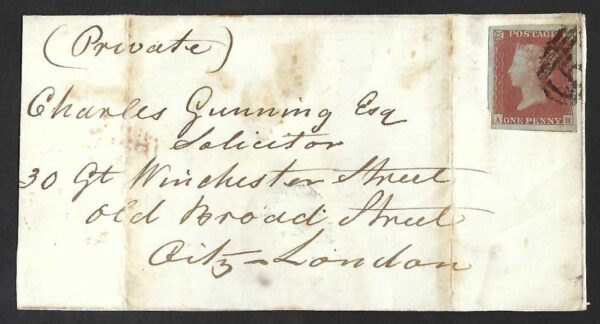 (Private)
POSTAGE
Charles Gunning Esq
Solicitor
30 Gt Winchester Street
Old Broad Street
City - London
A ONE PENNY H